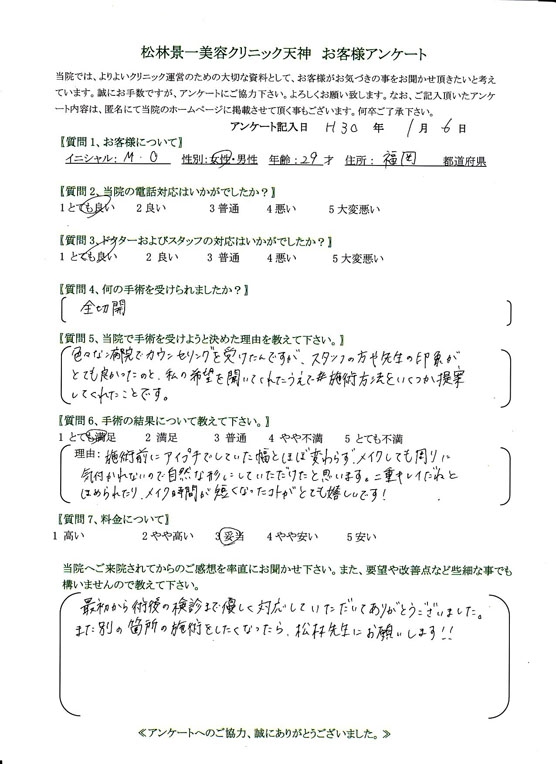 松林景一美容クリニック天神　お客様アンケート
当院では、よりよいクリニック運営のための大切な資料として、お客様がお気づきの事をお聞かせ頂きたいと考え
ています。誠にお手数ですが、アンケートにご協力下さい。よろしくお願い致します。なお、ご記入頂いたアンケ
ート内容は、匿名にて当院のホームページに掲載させて頂く事もございます。何卒ご了承下さい。
アンケート記入日 H30 年 1 月 6 日
【質問1、お客様について】
イニシャル: M.O 性別:女性・男性 年齢:29才 住所: 福岡 都道府県
【質問2、当院の電話対応はいかがでしたか？】
1 とても良い 2 良い 3 普通 4 悪い 5 大変悪い
【質問3、ドクターおよびスタッフの対応はいかがでしたか？】
1 とても良い 2 良い 3 普通 4 悪い 5 大変悪い
【質問4、何の手術を受けられましたか？】
全切開
【質問5、当院で手術を受けようと決めた理由を教えて下さい。】
色々な病院でカウンセリングを受けたんですが、スタッフの方や先生の印象が
とても良かったのと、私の希望を聞いてくれたうえで施術方法をいくつか提案
してくれたことです。
【質問6、手術の結果について教えて下さい。】
1 とても満足 2 満足 3 普通 4 やや不満 5 とても不満
理由: 施術前にアイプチでしていた幅とほぼ変わらず、メイクしても周りに
気付かれないので自然な形にしていただけたと思います。二重キレイだねと
ほめられたり、メイク時間が短くなったコトがとても嬉しいです！
【質問7、料金について】
1 高い 2 やや高い 3 妥当 4 やや安い 5 安い
当院へご来院されてからのご感想を率直にお聞かせ下さい。また、要望や改善点など些細な事でも
構いませんので教えて下さい。
最初から術後の検診まで優しく対応していただいてありがとうございました。
また別の箇所の施術をしたくなったら、松林先生にお願いします!!
≪アンケートへのご協力、誠にありがとうございました。≫